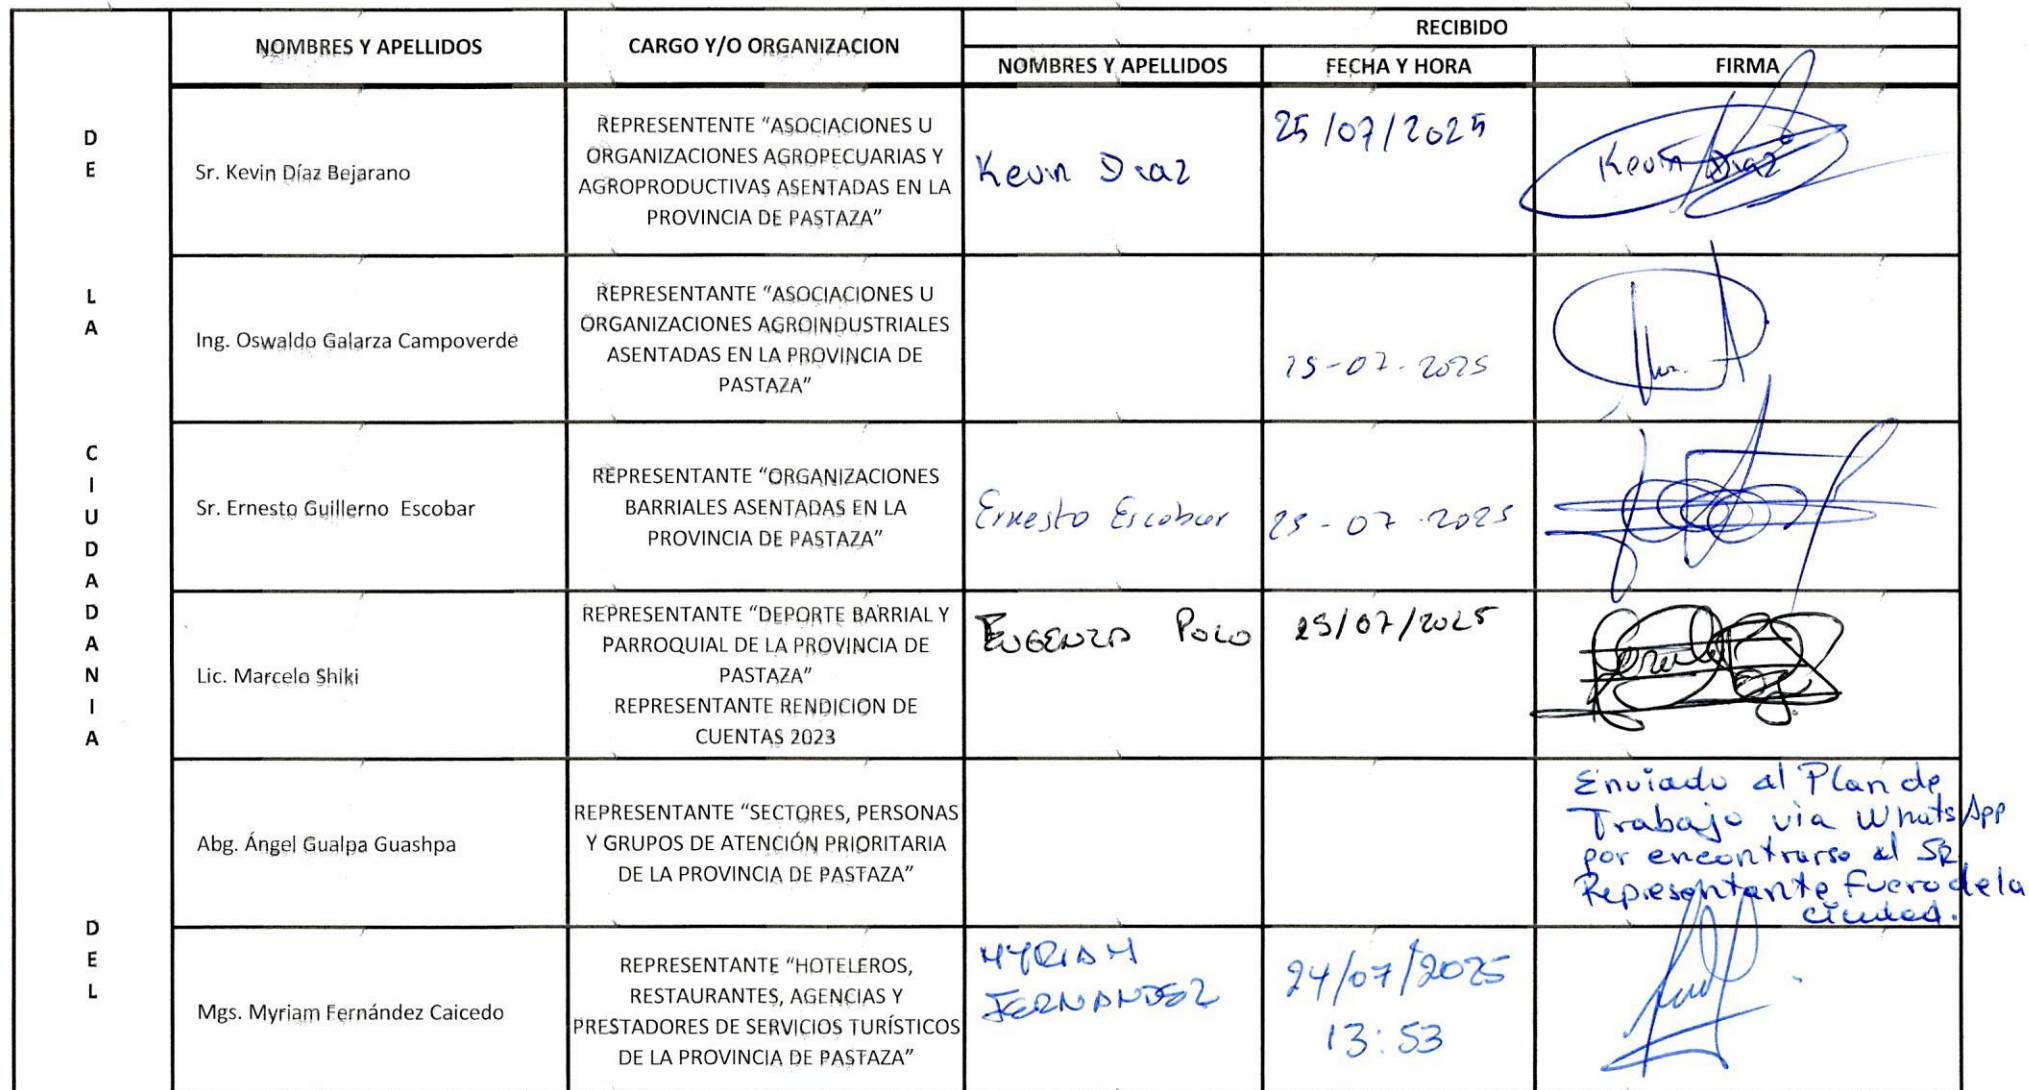 RECIBIDO
NOMBRES Y APELLIDOS
CARGO Y/O ORGANIZACION
NOMBRES Y APELLIDOS
FECHA Y HORA
FIRMA
D
E
L
A
C
I
U
D
A
D
A
N
I
A
D
E
L
Sr. Kevin Díaz Bejarano
REPRESENTENTE “ASOCIACIONES U
ORGANIZACIONES AGROPECUARIAS Y
AGROPRODUCTIVAS ASENTADAS EN LA
PROVINCIA DE PASTAZA”
Kevin Diaz
25/07/2025
Kevin Diaz
Ing. Oswaldo Galarza Campoverde
REPRESENTANTE “ASOCIACIONES U
ORGANIZACIONES AGROINDUSTRIALES
ASENTADAS EN LA PROVINCIA DE
PASTAZA”
25-07-2025
Sr. Ernesto Guillerno Escobar
REPRESENTANTE “ORGANIZACIONES
BARRIALES ASENTADAS EN LA
PROVINCIA DE PASTAZA”
Ernesto Escobar
25-07-2025
Lic. Marcelo Shiki
REPRESENTANTE “DEPORTE BARRIAL Y
PARROQUIAL DE LA PROVINCIA DE
PASTAZA”
REPRESENTANTE RENDICION DE
CUENTAS 2023
EUGENIA POLO
25/07/2025
Abg. Ángel Gualpa Guashpa
REPRESENTANTE “SECTORES, PERSONAS
Y GRUPOS DE ATENCIÓN PRIORITARIA
DE LA PROVINCIA DE PASTAZA”
Enviado al Plan de
Trabajo via WhatsApp
por encontrarse el SR
Representante Fuera de la
ciudad.
Mgs. Myriam Fernández Caicedo
REPRESENTANTE “HOTELEROS,
RESTAURANTES, AGENCIAS Y
PRESTADORES DE SERVICIOS TURÍSTICOS
DE LA PROVINCIA DE PASTAZA”
MYRIAM
FERNANDEZ
24/07/2025
13:53